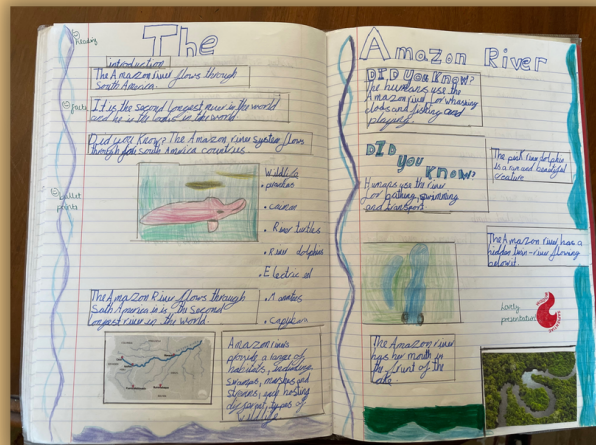 The
Reading
introduction
The Amazon river flows through
South America.
facts
It is the second longest river in the world
and he is the in the world.
Did you know? The Amazon river system flows
through south America countries
bullet
points
Wildlife
• piranhas
• caiman
• River turtles
• River dolphins
• Electric eel
• Manatee
• capybara
The Amazon River flows through
South America is is the second
longest river in the world.
Amazon rivers
provide a range of
habitats, including
swamps, marshes and
streams, each hosting
different types of
wildlife
Amazon River
DID YOU KNOW?
The humans use the
Amazon river for whasing
and fishing and
playing.
DID
you
KNOW?
Humans use the river
for bathing, swimming
and transport
The pink river dolphin
is a and beautiful
creature
The Amazon river has a
hidden twin-river flowing
below it.
Lovely
presentation
The Amazon river
has her mouth in
the frunt of the